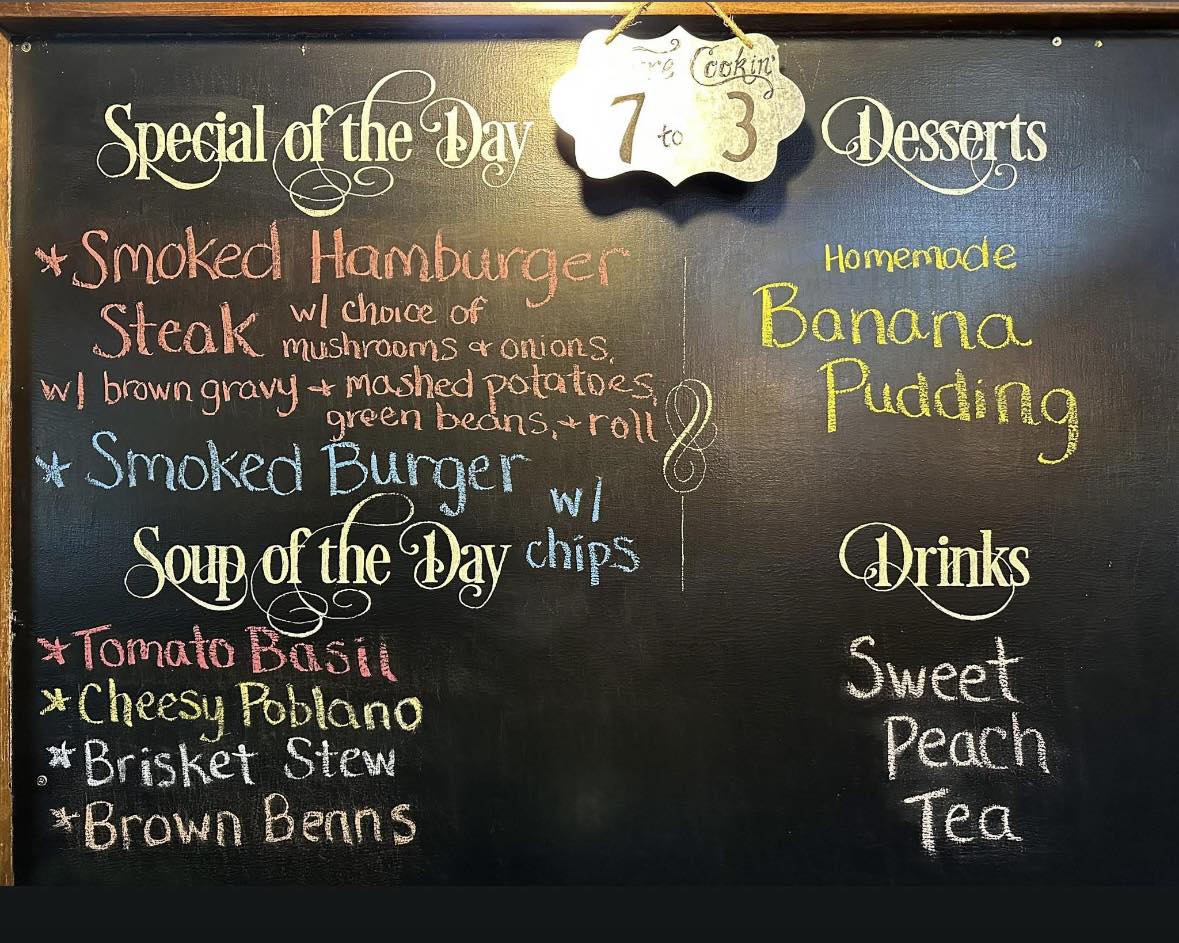 Cookin'
7 to 3
Special of the Day
* Smoked Hamburger
Steak w/ choice of
mushrooms & onions,
w/ brown gravy + mashed potatoes,
green beans, + roll
* Smoked Burger
w/
chips
Soup of the Day
* Tomato Basil
* Cheesy Poblano
* Brisket Stew
* Brown Benns
Desserts
Homemade
Banana
Pudding
Drinks
Sweet
Peach
Tea